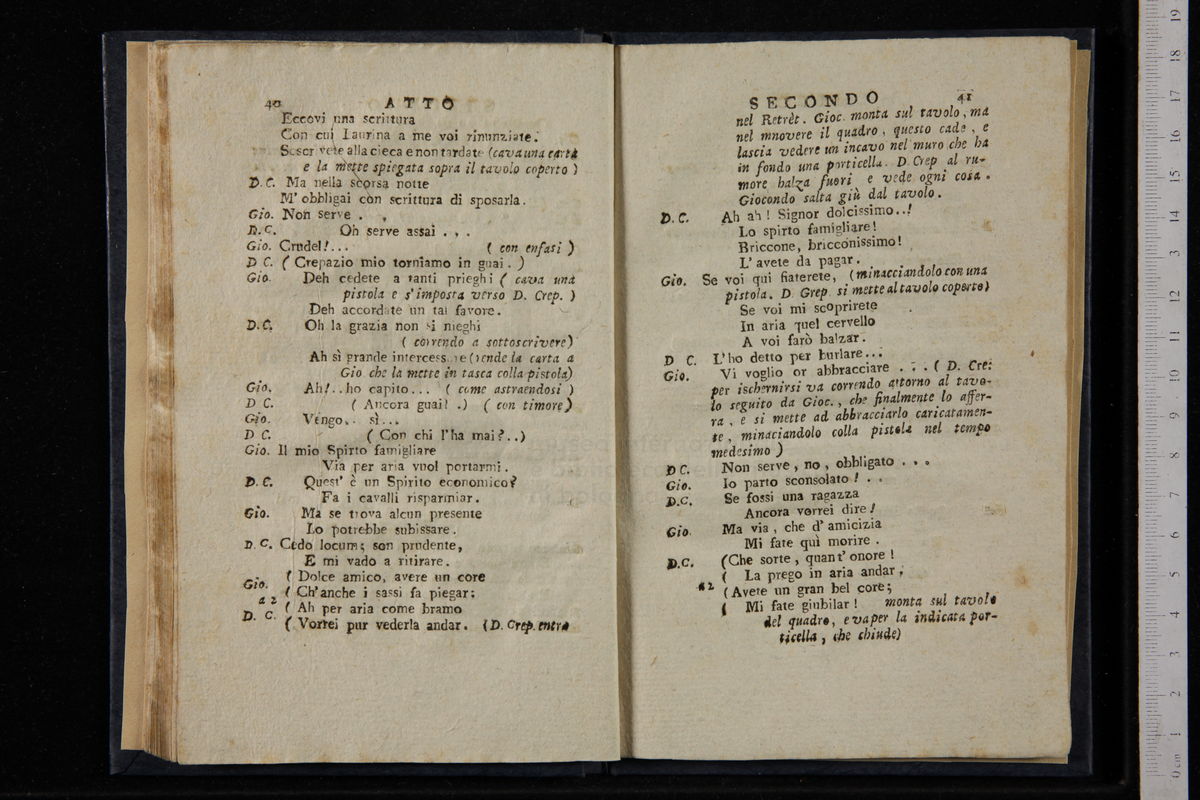 40 ATTO
Eccovi una scrittura
Con cui Laurina a me voi rinunziate.
Soscrivete alla cieca e non tardate (cava una carta
e la mette spiegata sopra il tavolo coperto)
D. C. Ma nella scorsa notte
M' obbligai con scrittura di sposarla.
Gio. Non serve . .
D. C. Oh serve assai . . .
Gio. Crudel!... ( con enfasi )
D C. ( Crepazio mio torniamo in guai. )
Gio. Deh cedete a tanti prieghi ( cava una
pistola e s' imposta verso D. Crep. )
Deh accordate un tal favore.
D. C. Oh la grazia non si nieghi
( correndo a sottoscrivere)
Ah sì grande intercessore (rende la carta a
Gio che la mette in tasca colla pistola)
Gio. Ah!..ho capito... ( come astraendosi )
D C. ( Ancora guai! .) ( con timore)
Gio. Vengo.. sì...
D C. ( Con chi l'ha mai?..)
Gio. Il mio Spirto famigliare
Via per aria vuol portarmi.
D. C. Quest' è un Spirito economico?
Fa i cavalli risparmiar.
Gio. Ma se trova alcun presente
Lo potrebbe subissare.
D. C. Cedo locum; son prudente,
E mi vado a ritirare.
Gio. ( Dolce amico, avere un core
( Ch' anche i sassi fa piegar;
a 2
D. C. ( Ah per aria come bramo
( Vorrei pur vederla andar. (D. Crep. entra
SECONDO 41
nel Retrèt. Gioc. monta sul tavolo, ma
nel mnovere il quadro, questo cade, e
lascia vedere un incavo nel muro che ha
in fondo una porticella. D Crep al ru-
more balza fuori e vede ogni cosa.
Giocondo salta giù dal tavolo.
D. C. Ah ah! Signor dolcissimo..!
Lo spirto famigliare!
Briccone, bricconissimo!
L' avete da pagar.
Gio. Se voi quì fiaterete, (minacciandolo con una
pistola. D. Grep. si mette al tavolo coperto)
Se voi mi scoprirete
In aria quel cervello
A voi farò balzar.
D C. L' ho detto per burlare...
Gio. Vi voglio or abbracciare . . . ( D. Cre:
per ischernirsi va correndo attorno al tavo-
lo seguito da Gioc., che finalmente lo affer-
ra, e si mette ad abbracciarlo caricatamen-
te, minaciandolo colla pistola nel tempo
medesimo )
D C. Non serve, no, obbligato . . .
Gio. Io parto sconsolato! . .
D.C. Se fossi una ragazza
Ancora vorrei dire!
Gio. Ma via, che d' amicizia
Mi fate quì morire.
D.C. (Che sorte, quant' onore!
( La prego in aria andar;
a2 (Avete un gran bel core;
( Mi fate giubilar! monta sul tavolo
del quadro, e va per la indicata por-
ticella, che chiude)